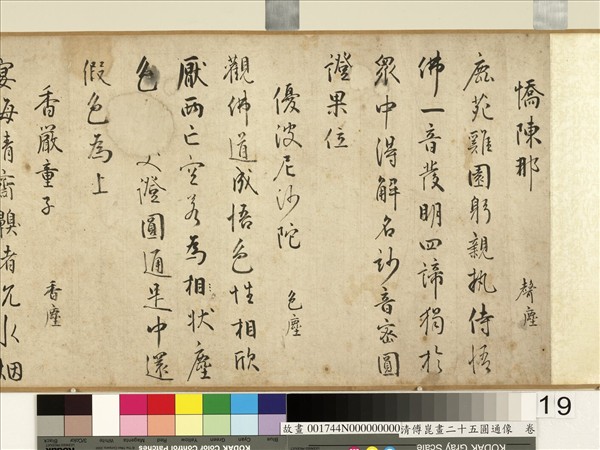 憍陳那 聲塵
鹿苑雞園躬親執侍悟
佛一音發明四諦獨於
眾中得解名妙音密圓
證果位
優波尼沙陀 色塵
觀佛道成悟色性相欣
厭兩亡空為相狀塵
色 證圓通是中還
假色為上
香嚴童子 香塵
宴晦清齋齅者沉水烟
19
故畫 001744N000000000 清傅崑畫二十五圓通像 卷
Black
3/Color
White
Magenta
Red
Yellow
Green
Cyan
Blue
KODAK Color Control Patches
KODAK Gray Scale